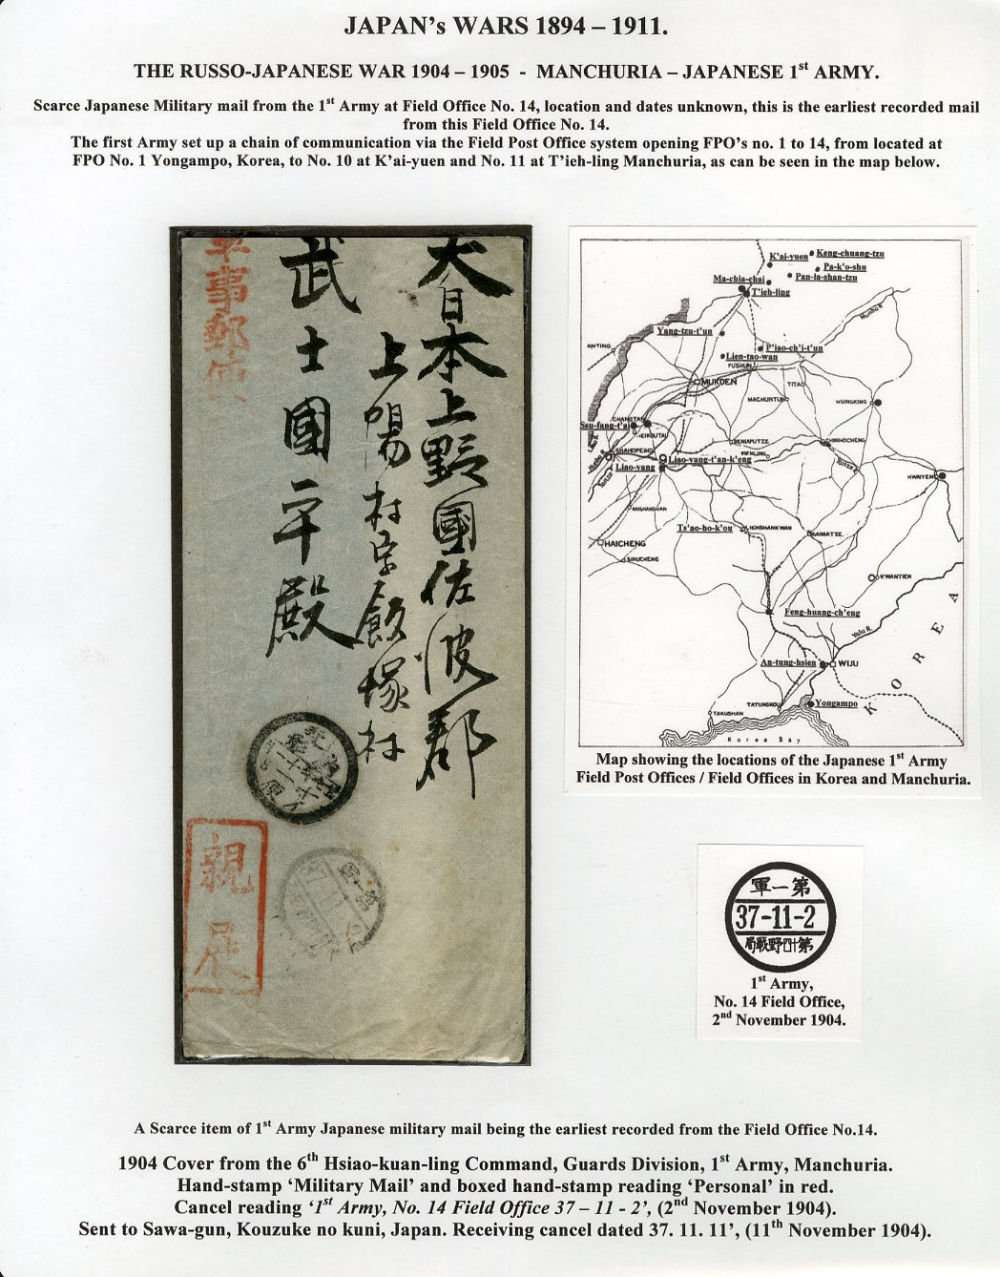 JAPAN's WARS 1894 – 1911.
THE RUSSO-JAPANESE WAR 1904 – 1905 - MANCHURIA – JAPANESE 1st ARMY.
Scarce Japanese Military mail from the 1st Army at Field Office No. 14, location and dates unknown, this is the earliest recorded mail
from this Field Office No. 14.
The first Army set up a chain of communication via the Field Post Office system opening FPO's no. 1 to 14, from located at
FPO No. 1 Yongampo, Korea, to No. 10 at K'ai-yuen and No. 11 at T'ieh-ling Manchuria, as can be seen in the map below.
大日本上野國佐波郡
上陽村字飯塚村
武士國平殿
軍事郵便
親展
K'ai-yuen
Keng-chuang-tzu
Pa-k'o-shu
Pan-la-shan-tzu
Ma-chia-chai
T'ieh-ling
Hunho R.
Yang-tzu-t'un
P'iao-ch'i-t'un
Lien-tao-wan
FUSHUN
MUKDEN
TITAO
MACHUNTUN
HSINGKING
CHANGTAN
Ssu-fang-t'ai
HEIKOUTAI
Liao-yang-t'an-k'eng
Liao-yang
CHINHOCHENG
HWAIYEN
ANSHANSHAN
Ts'ao-ho-k'ou
HAICHENG
SIHUCHENG
KWANTIEN
Feng-huang-ch'eng
Yalu R.
An-tung-hsien
WIJU
KOREA
TATUNGKOU
Yongampo
TAKUSHAN
Korea Bay
Map showing the locations of the Japanese 1st Army
Field Post Offices / Field Offices in Korea and Manchuria.
軍一第
37-11-2
局戰野四十第
1st Army,
No. 14 Field Office,
2nd November 1904.
A Scarce item of 1st Army Japanese military mail being the earliest recorded from the Field Office No.14.
1904 Cover from the 6th Hsiao-kuan-ling Command, Guards Division, 1st Army, Manchuria.
Hand-stamp 'Military Mail' and boxed hand-stamp reading 'Personal' in red.
Cancel reading '1st Army, No. 14 Field Office 37 – 11 - 2', (2nd November 1904).
Sent to Sawa-gun, Kouzuke no kuni, Japan. Receiving cancel dated 37. 11. 11', (11th November 1904).